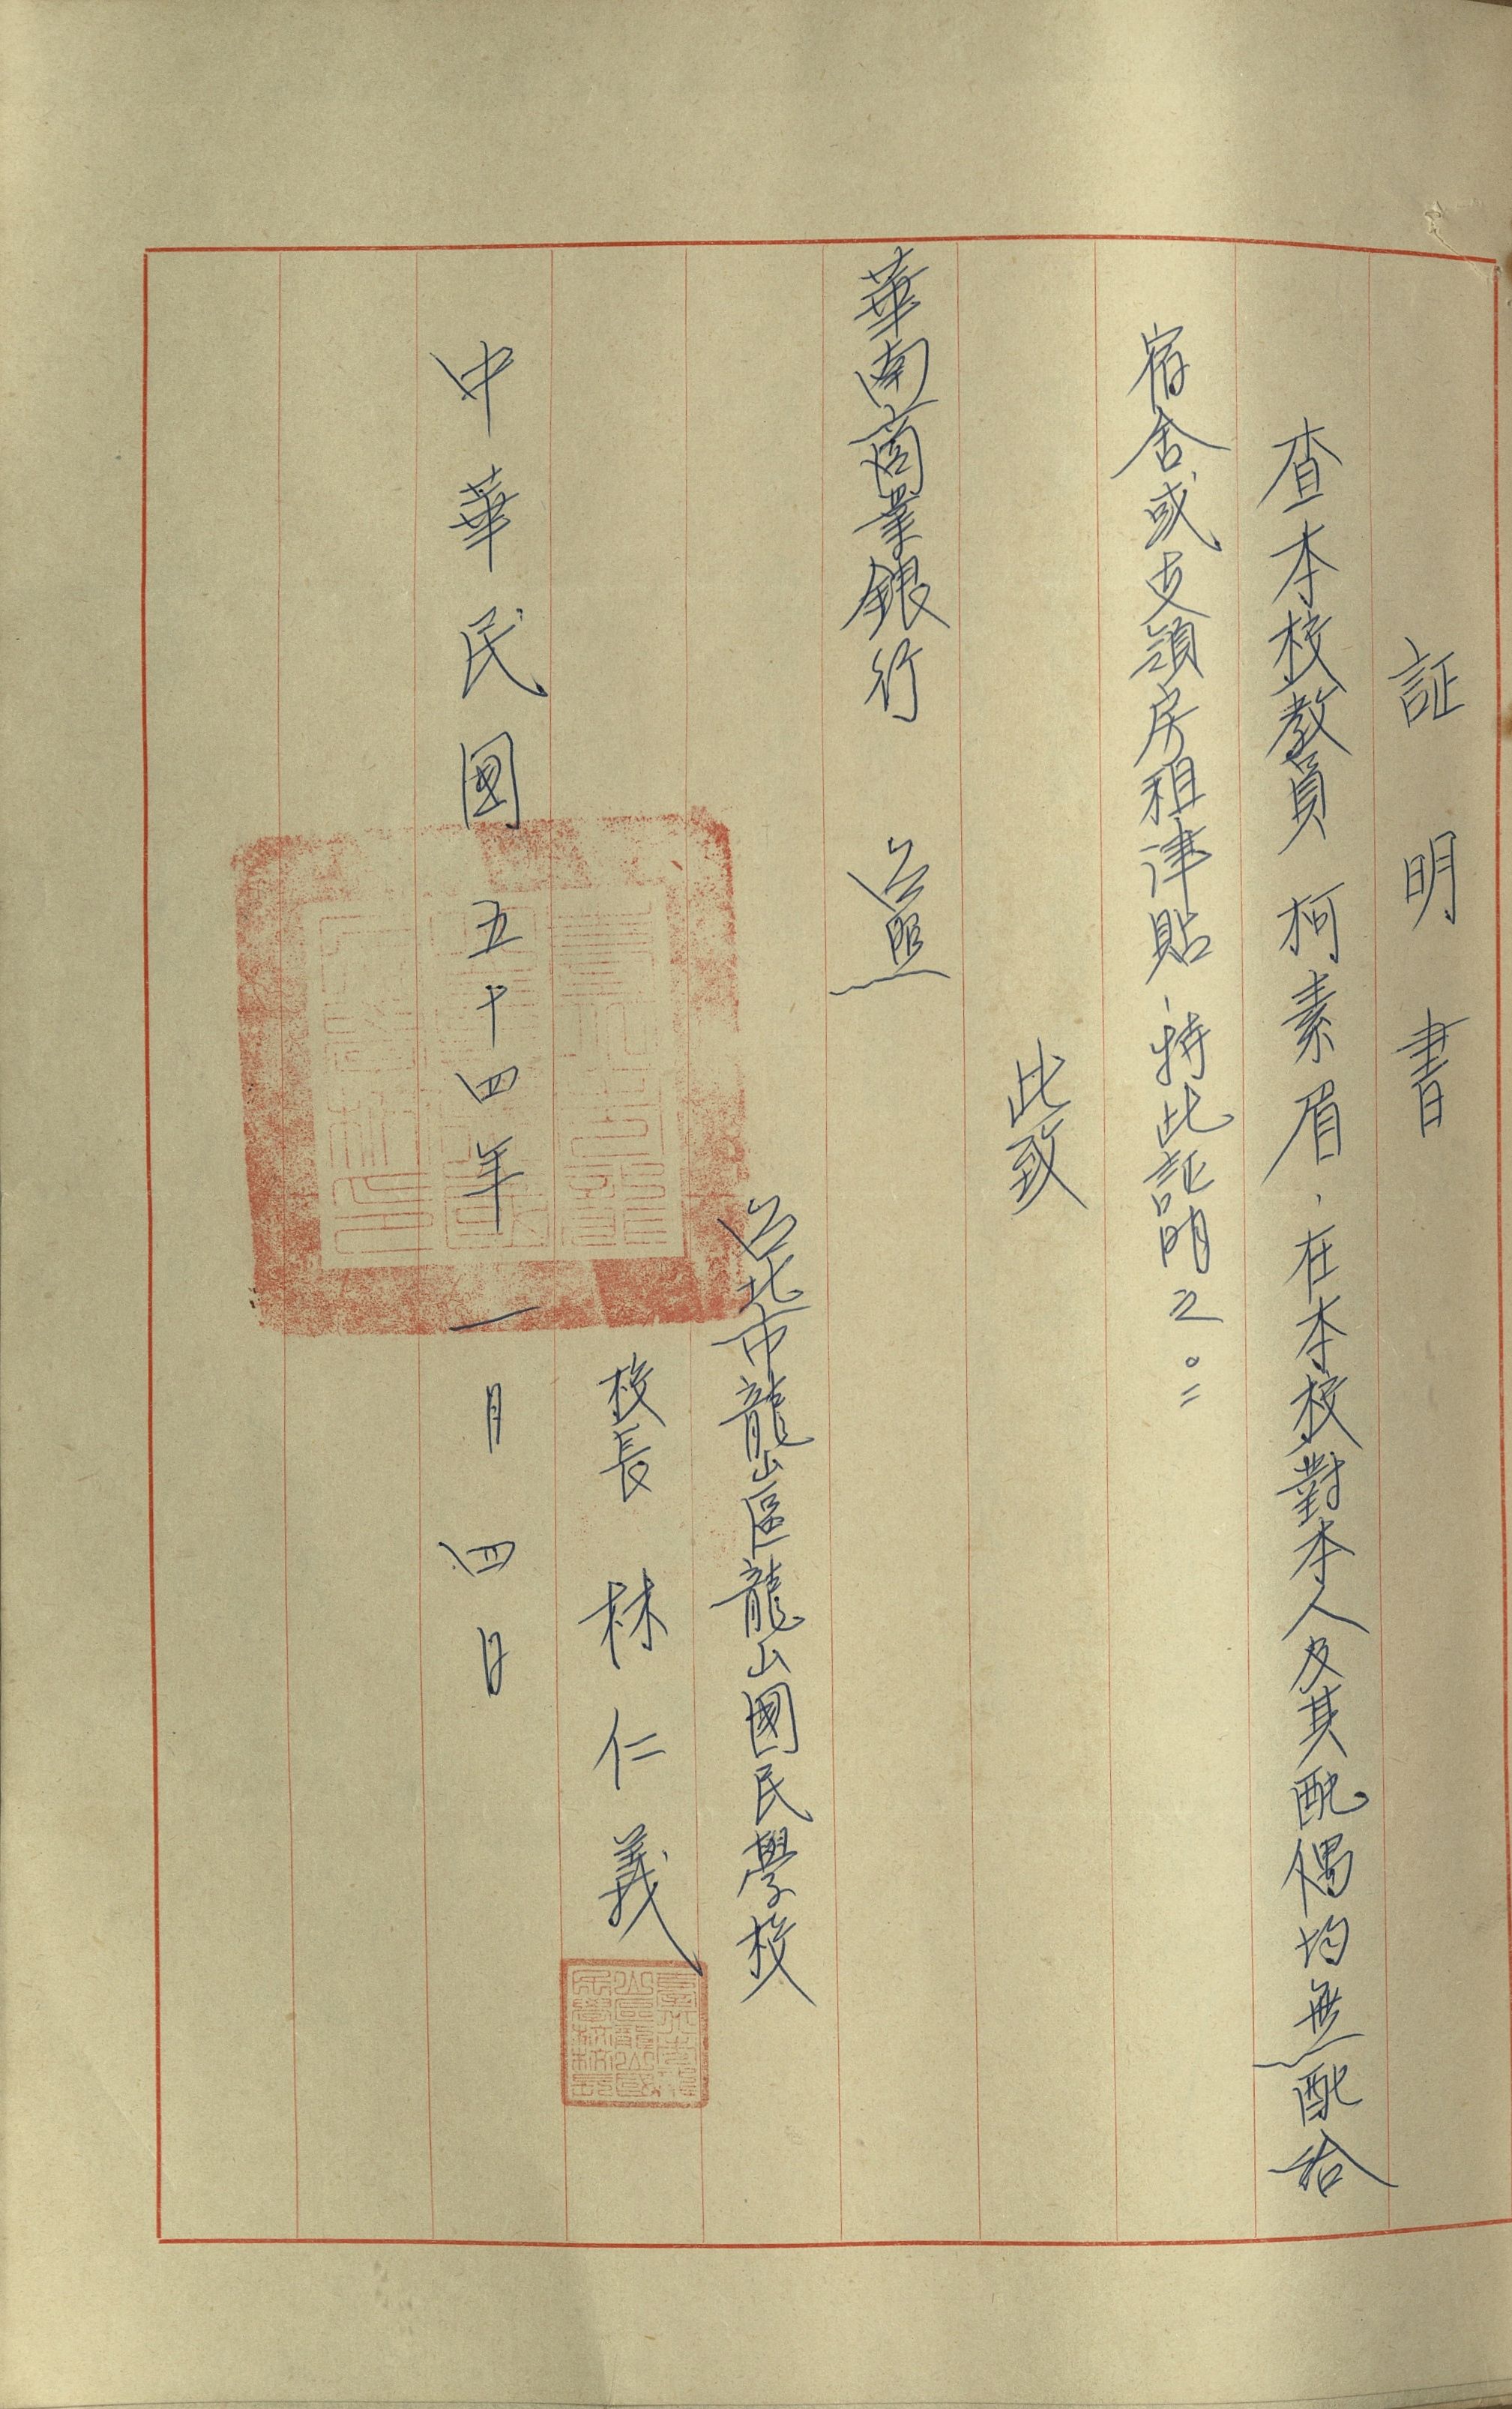 証明書
查本校教員 柯素眉,在本校對本人及其配偶均無配給
宿舍或支領房租津貼,特此証明之。〃
此致
華南商業銀行 台照
台北市龍山區龍山國民學校
校長 林仁義
中華民國五十四年一月四日